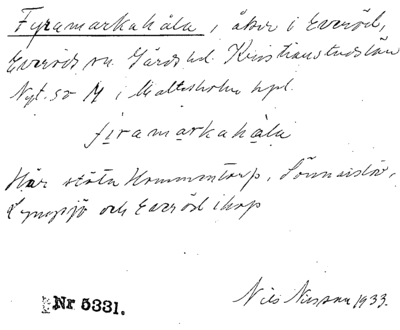 Fyramarkahåla, åker i Everöd,
Everöds sn. Gärds hd. Kristianstads län
Nyt. so M i Maltesholm kpl.
firamarkahåla
Här stöta Hommentorp, Sönnarslöv,
Lyngsjö och Everöd ihop
Nils Nilsson 1933.
Nr 5331.